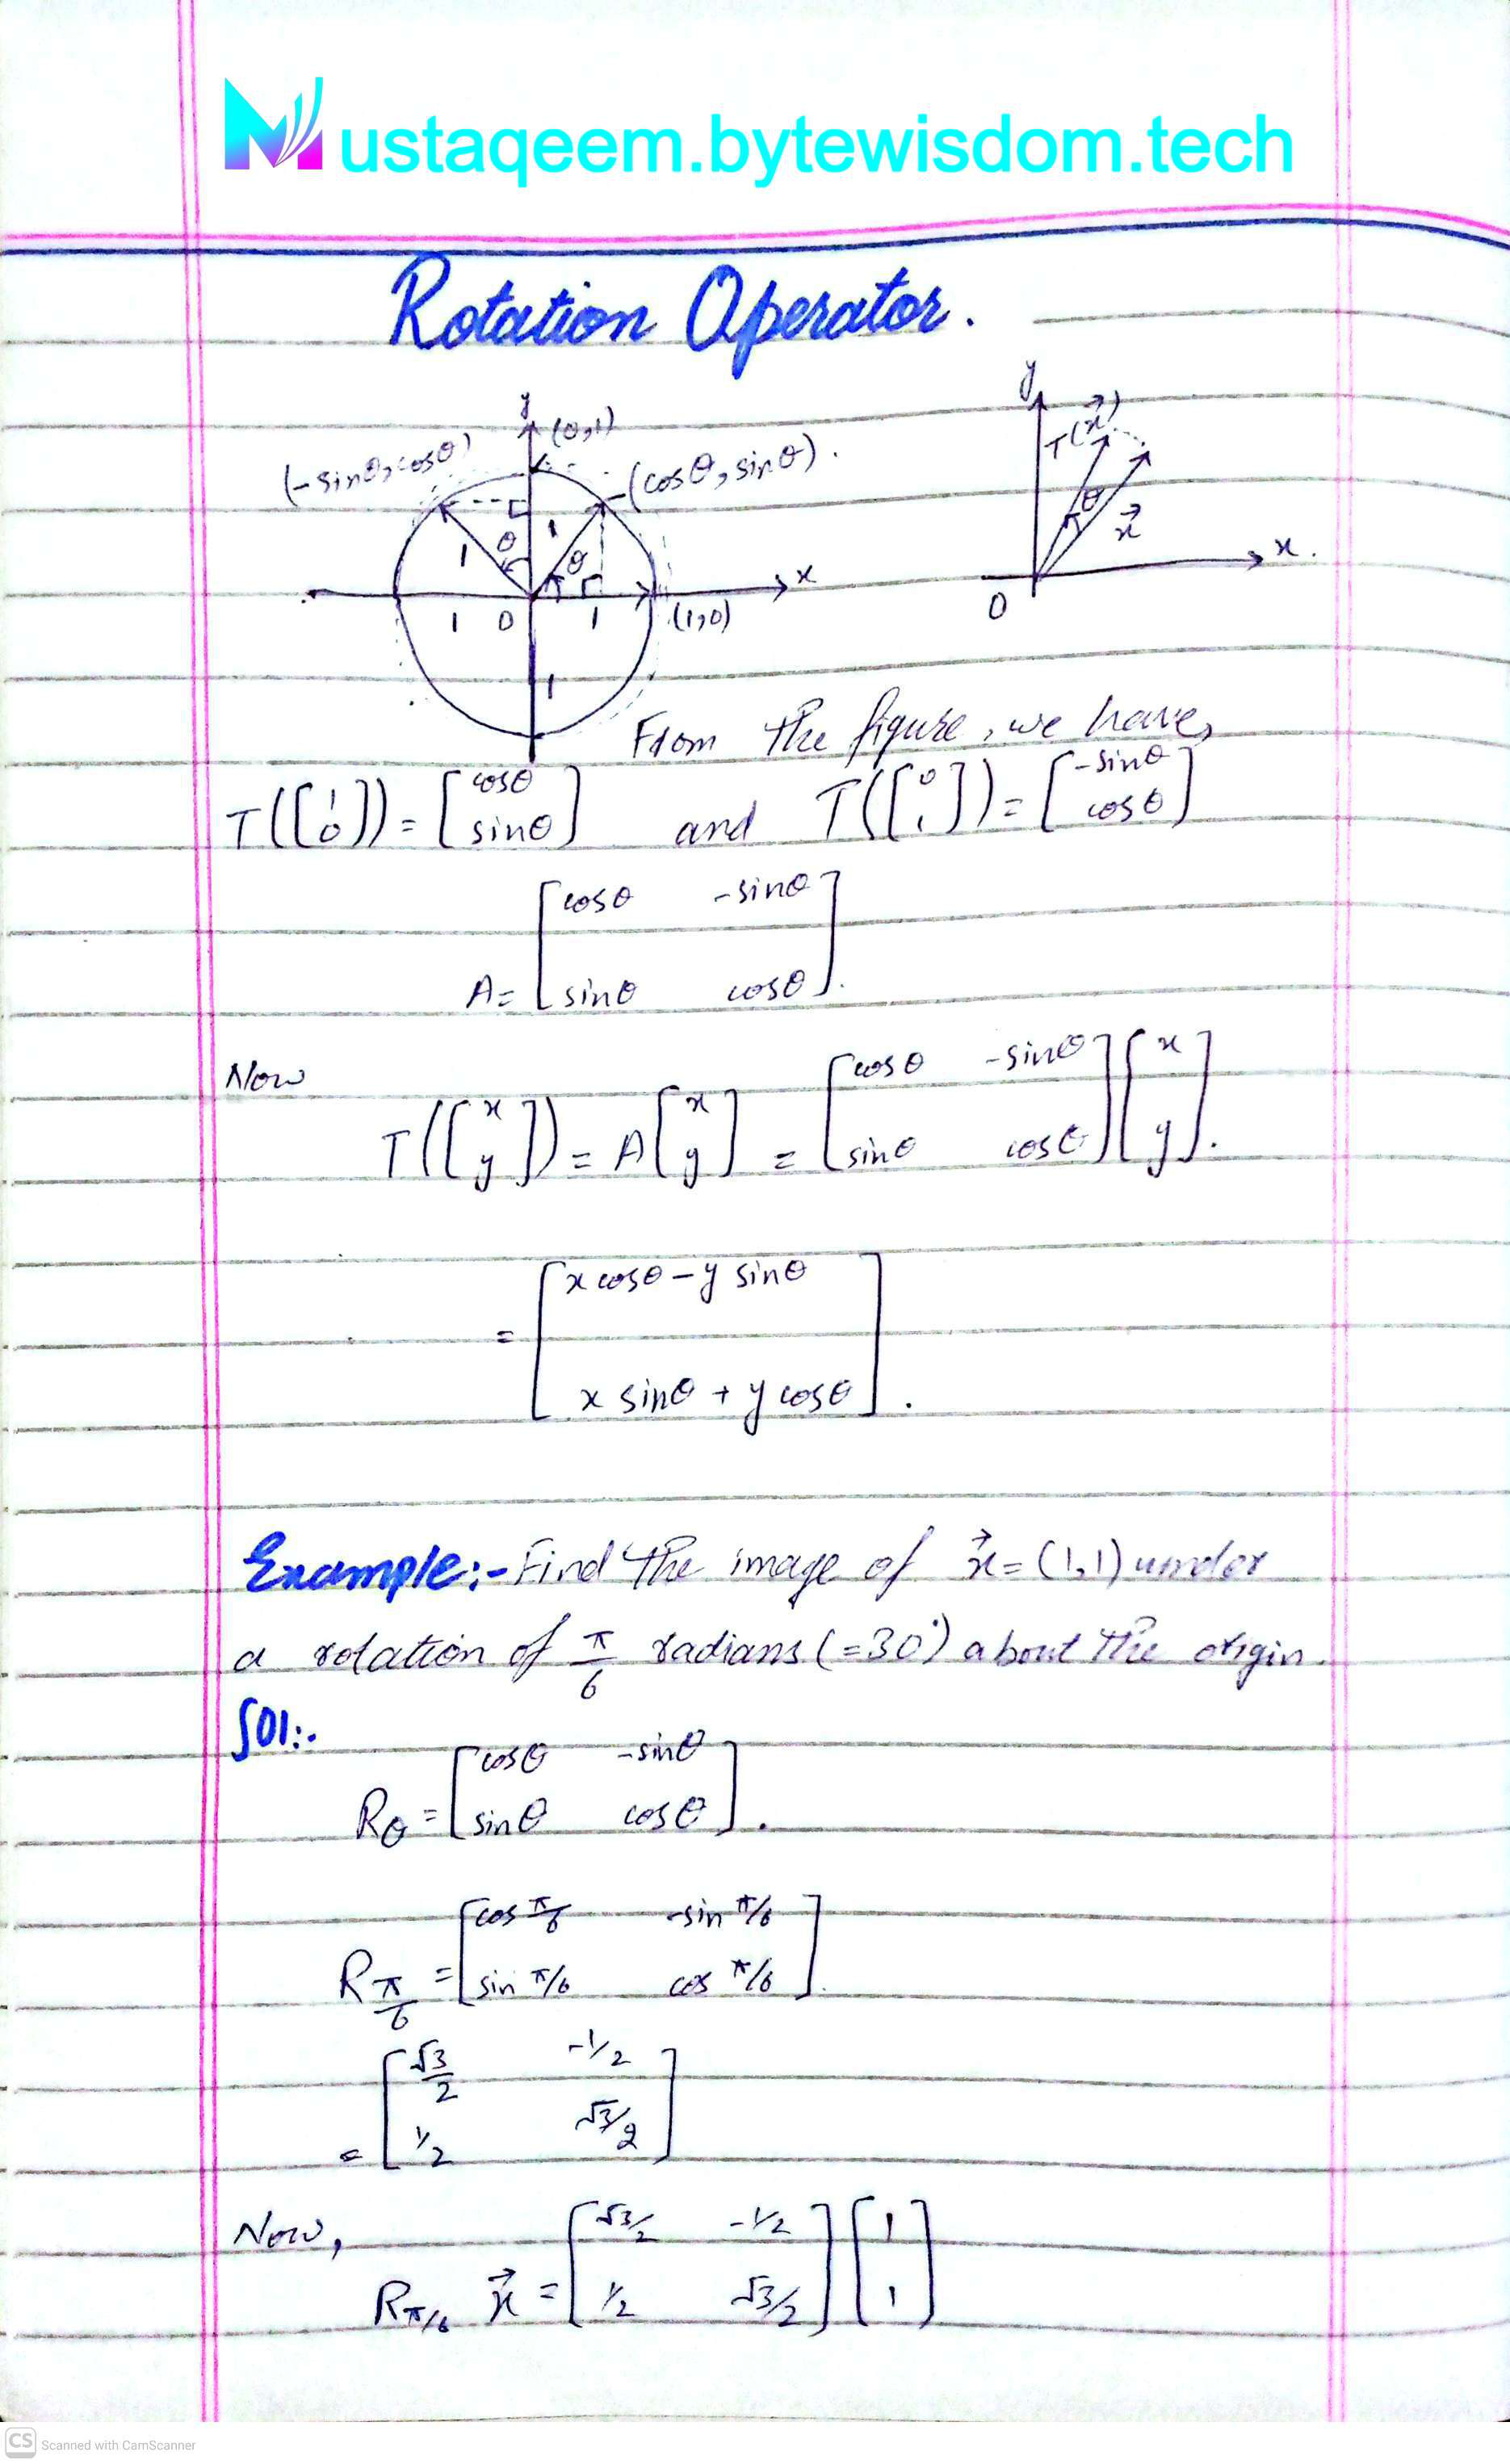 Mustaqeem.bytewisdom.tech
Rotation Operator.
y
(0,1)
(-sinθ, cosθ)
(cosθ, sinθ).
1
1
θ
θ
x
1
0
1
(1,0)
1
y
T(x⃗)
θ
x⃗
x.
0
From the figure, we have,
T([1 0]) = [cosθ sinθ] and T([0 1]) = [-sinθ cosθ]
A = [cosθ -sinθ
sinθ cosθ].
Now
T([x y]) = A[x y] = [cosθ -sinθ
sinθ cosθ][x y].
= [x cosθ - y sinθ
x sinθ + y cosθ].
Example:- Find the image of x⃗ = (1,1) under
a rotation of π/6 radians (=30°) about the origin.
Sol:-
Rθ = [cosθ -sinθ
sinθ cosθ].
Rπ/6 = [cos π/6 -sin π/6
sin π/6 cos π/6].
= [√3/2 -1/2
1/2 √3/2]
Now,
Rπ/6 x⃗ = [√3/2 -1/2
1/2 √3/2][1 1]
CS Scanned with CamScanner